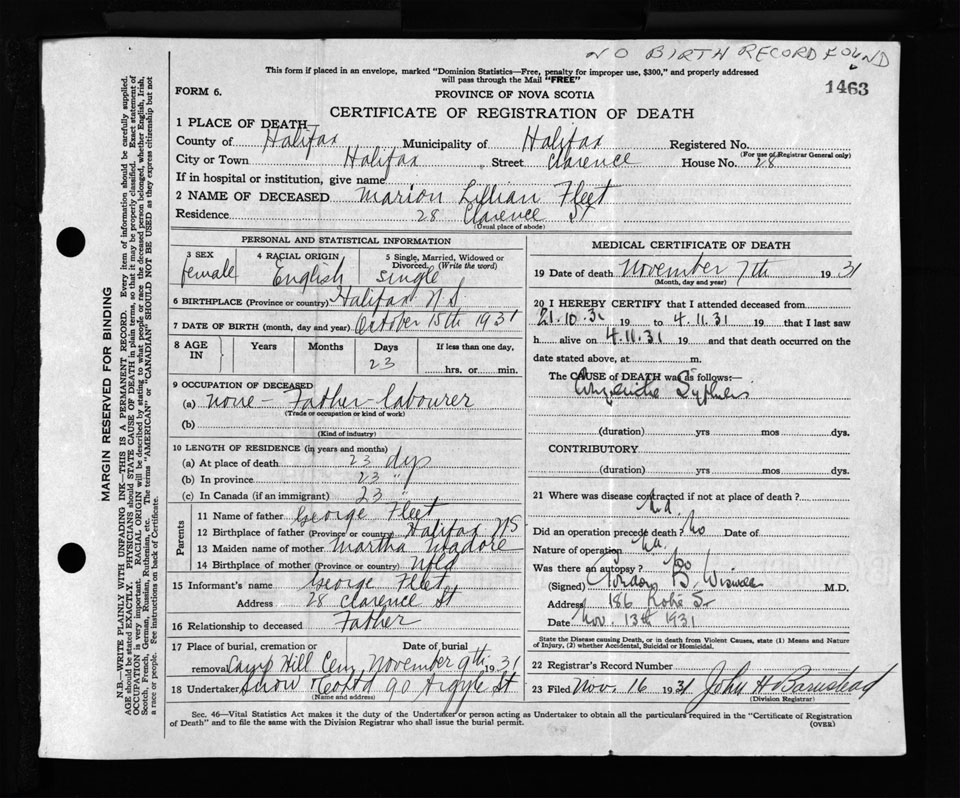 NO BIRTH RECORD FOUND
This form if placed in an envelope, marked "Dominion Statistics—Free, penalty for improper use, $300," and properly addressed
will pass through the Mail "FREE"
1463
FORM 6.
PROVINCE OF NOVA SCOTIA
CERTIFICATE OF REGISTRATION OF DEATH
1 PLACE OF DEATH—
County of Halifax Municipality of Halifax Registered No.
(For use of Registrar General only)
City or Town Halifax Street Clarence House No. 28
If in hospital or institution, give name
2 NAME OF DECEASED Marion Lillian Fleet
Residence 28 Clarence St
(Usual place of abode)
PERSONAL AND STATISTICAL INFORMATION
3 SEX 4 RACIAL ORIGIN 5 Single, Married, Widowed or
Divorced. (Write the word)
female English single
6 BIRTHPLACE (Province or country) Halifax N.S.
7 DATE OF BIRTH (month, day and year) October 15th 1931
8 AGE IN Years Months Days If less than one day,
23 hrs. or min.
9 OCCUPATION OF DECEASED
(a) none - Father - labourer
(Trade or occupation or kind of work)
(b)
(Kind of industry)
10 LENGTH OF RESIDENCE (in years and months)
(a) At place of death 23 dys
(b) In province 23 "
(c) In Canada (if an immigrant) 23 "
Parents
11 Name of father George Fleet
12 Birthplace of father (Province or country) Halifax NS
13 Maiden name of mother Martha
14 Birthplace of mother (Province or country) Nfld
15 Informant's name George Fleet
Address 28 Clarence St
16 Relationship to deceased Father
17 Place of burial, cremation or removal Date of burial
Camp Hill Cem. November 9th 1931
18 Undertaker Snow & Co Ltd 90 Argyle St
(Name and address)
MEDICAL CERTIFICATE OF DEATH
19 Date of death November 7th 1931
(Month, day and year)
20 I HEREBY CERTIFY that I attended deceased from
21.10.31 19 to 4.11.31 19 that I last saw
h alive on 4.11.31 19 and that death occurred on the
date stated above, at m.
The CAUSE OF DEATH was as follows:—
(duration) yrs mos dys.
CONTRIBUTORY
(duration) yrs mos dys.
21 Where was disease contracted if not at place of death?
Na.
Did an operation precede death? No Date of
Nature of operation Na.
Was there an autopsy? No
(Signed) Gordon B. Wiswell M.D.
Address 186 Robie St
Date Nov. 13th 1931
State the Disease causing Death, or in death from Violent Causes, state (1) Means and Nature
of Injury, (2) whether Accidental, Suicidal or Homicidal.
22 Registrar's Record Number
23 Filed Nov. 16 1931 John H Barnstead
(Division Registrar)
Sec. 46—Vital Statistics Act makes it the duty of the Undertaker or person acting as Undertaker to obtain all the particulars required in the "Certificate of Registration
of Death" and to file the same with the Division Registrar who shall issue the burial permit.
(OVER)
MARGIN RESERVED FOR BINDING
N.B.—WRITE PLAINLY WITH UNFADING INK—THIS IS A PERMANENT RECORD. Every item of information should be carefully supplied.
AGE should be stated EXACTLY. PHYSICIANS should STATE CAUSE OF DEATH in plain terms, so that it may be properly classified. Exact statement of
OCCUPATION is very important. RACIAL ORIGIN will be described by stating to what people or race the deceased person belonged, whether English, Irish,
Scotch, French, German, Russian, Ruthenian, etc. The terms "AMERICAN" or "CANADIAN" SHOULD NOT BE USED as they express citizenship but not
a race or people. See instructions on back of Certificate.